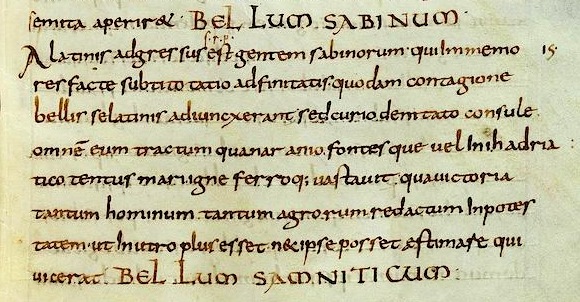 semita aperir&. BELLUM SABINUM
s. r. p.
Alatinis adgressus est gentem sabinorum. qui inmemo 15.
res facte subtito tatio adfinitatis. quodam contagione
bellis selatinis adiuncxerant. sed curio dentato consule
omnē eum tractum quanar anio. fontesque uelini hadria
tico tentus mari igne ferroq; uastauit. qua uictoria
tantum hominum. tantum agrorum redactum inpotes
tatem. ut inutro plus esset necipse posset æstimare qui
uicerat. BELLUM SAMNITICUM